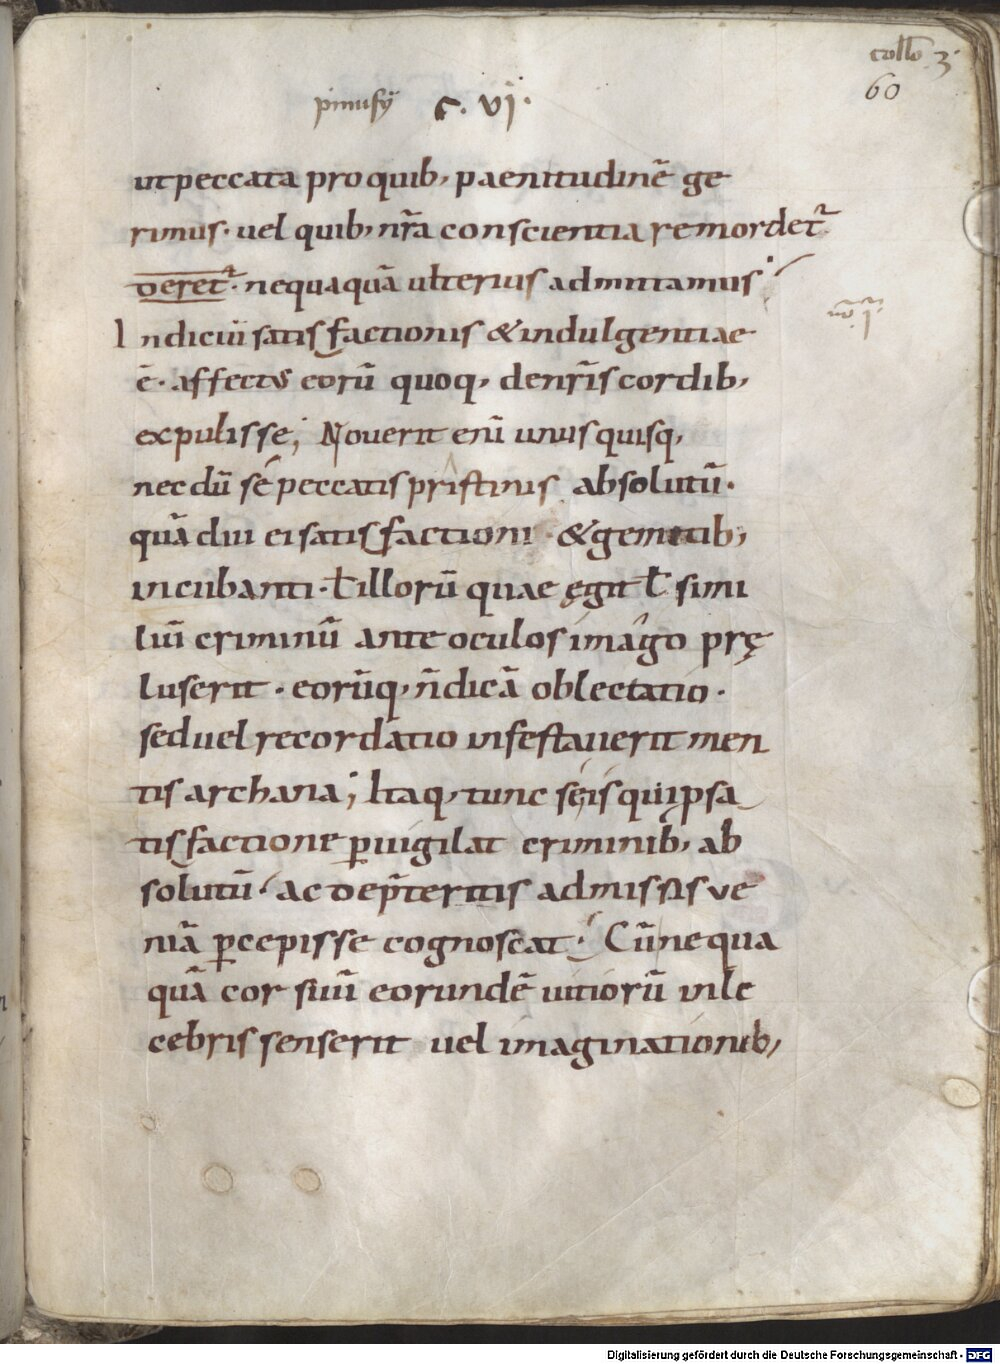 collõ 3·
60
pinufÿ c. vi·
ut peccata pro quib, paenitudinẽ ge
rimus· uel quib, nr̃a conscientia remordet᷑
deret᷑· nequaquã ulterius admittamus
Indiciũ satisfactionis & indulgentiae
ẽ· affectus eorũ quoq, de nr̃is cordib,
expulisse; Nouerit enĩ unusquisq,
nec dũ sé peccatis pristinis absolutũ·
quãdiu ei satisfactioni · & gemitib;
incubanti · ł illorũ quae ęgit ł simi
liũ criminũ ante oculos imago prę
luserit · eorũq, ñ dicã oblectatio ·
sed uel recordatio infestauerit men
tis archana; Itaq, tunc séíś qui ip sa
tisfactione ꝑuigilat criminib, ab
solutũ· ac de p̃teritis admissis ve
niã ꝑcepisse cognoscat· Cũ nequa
quã cor suũ eorundẽ uitiorũ inle
cebris senserit uel imaginationib,
Digitalisierung gefördert durch die Deutsche Forschungsgemeinschaft - DFG